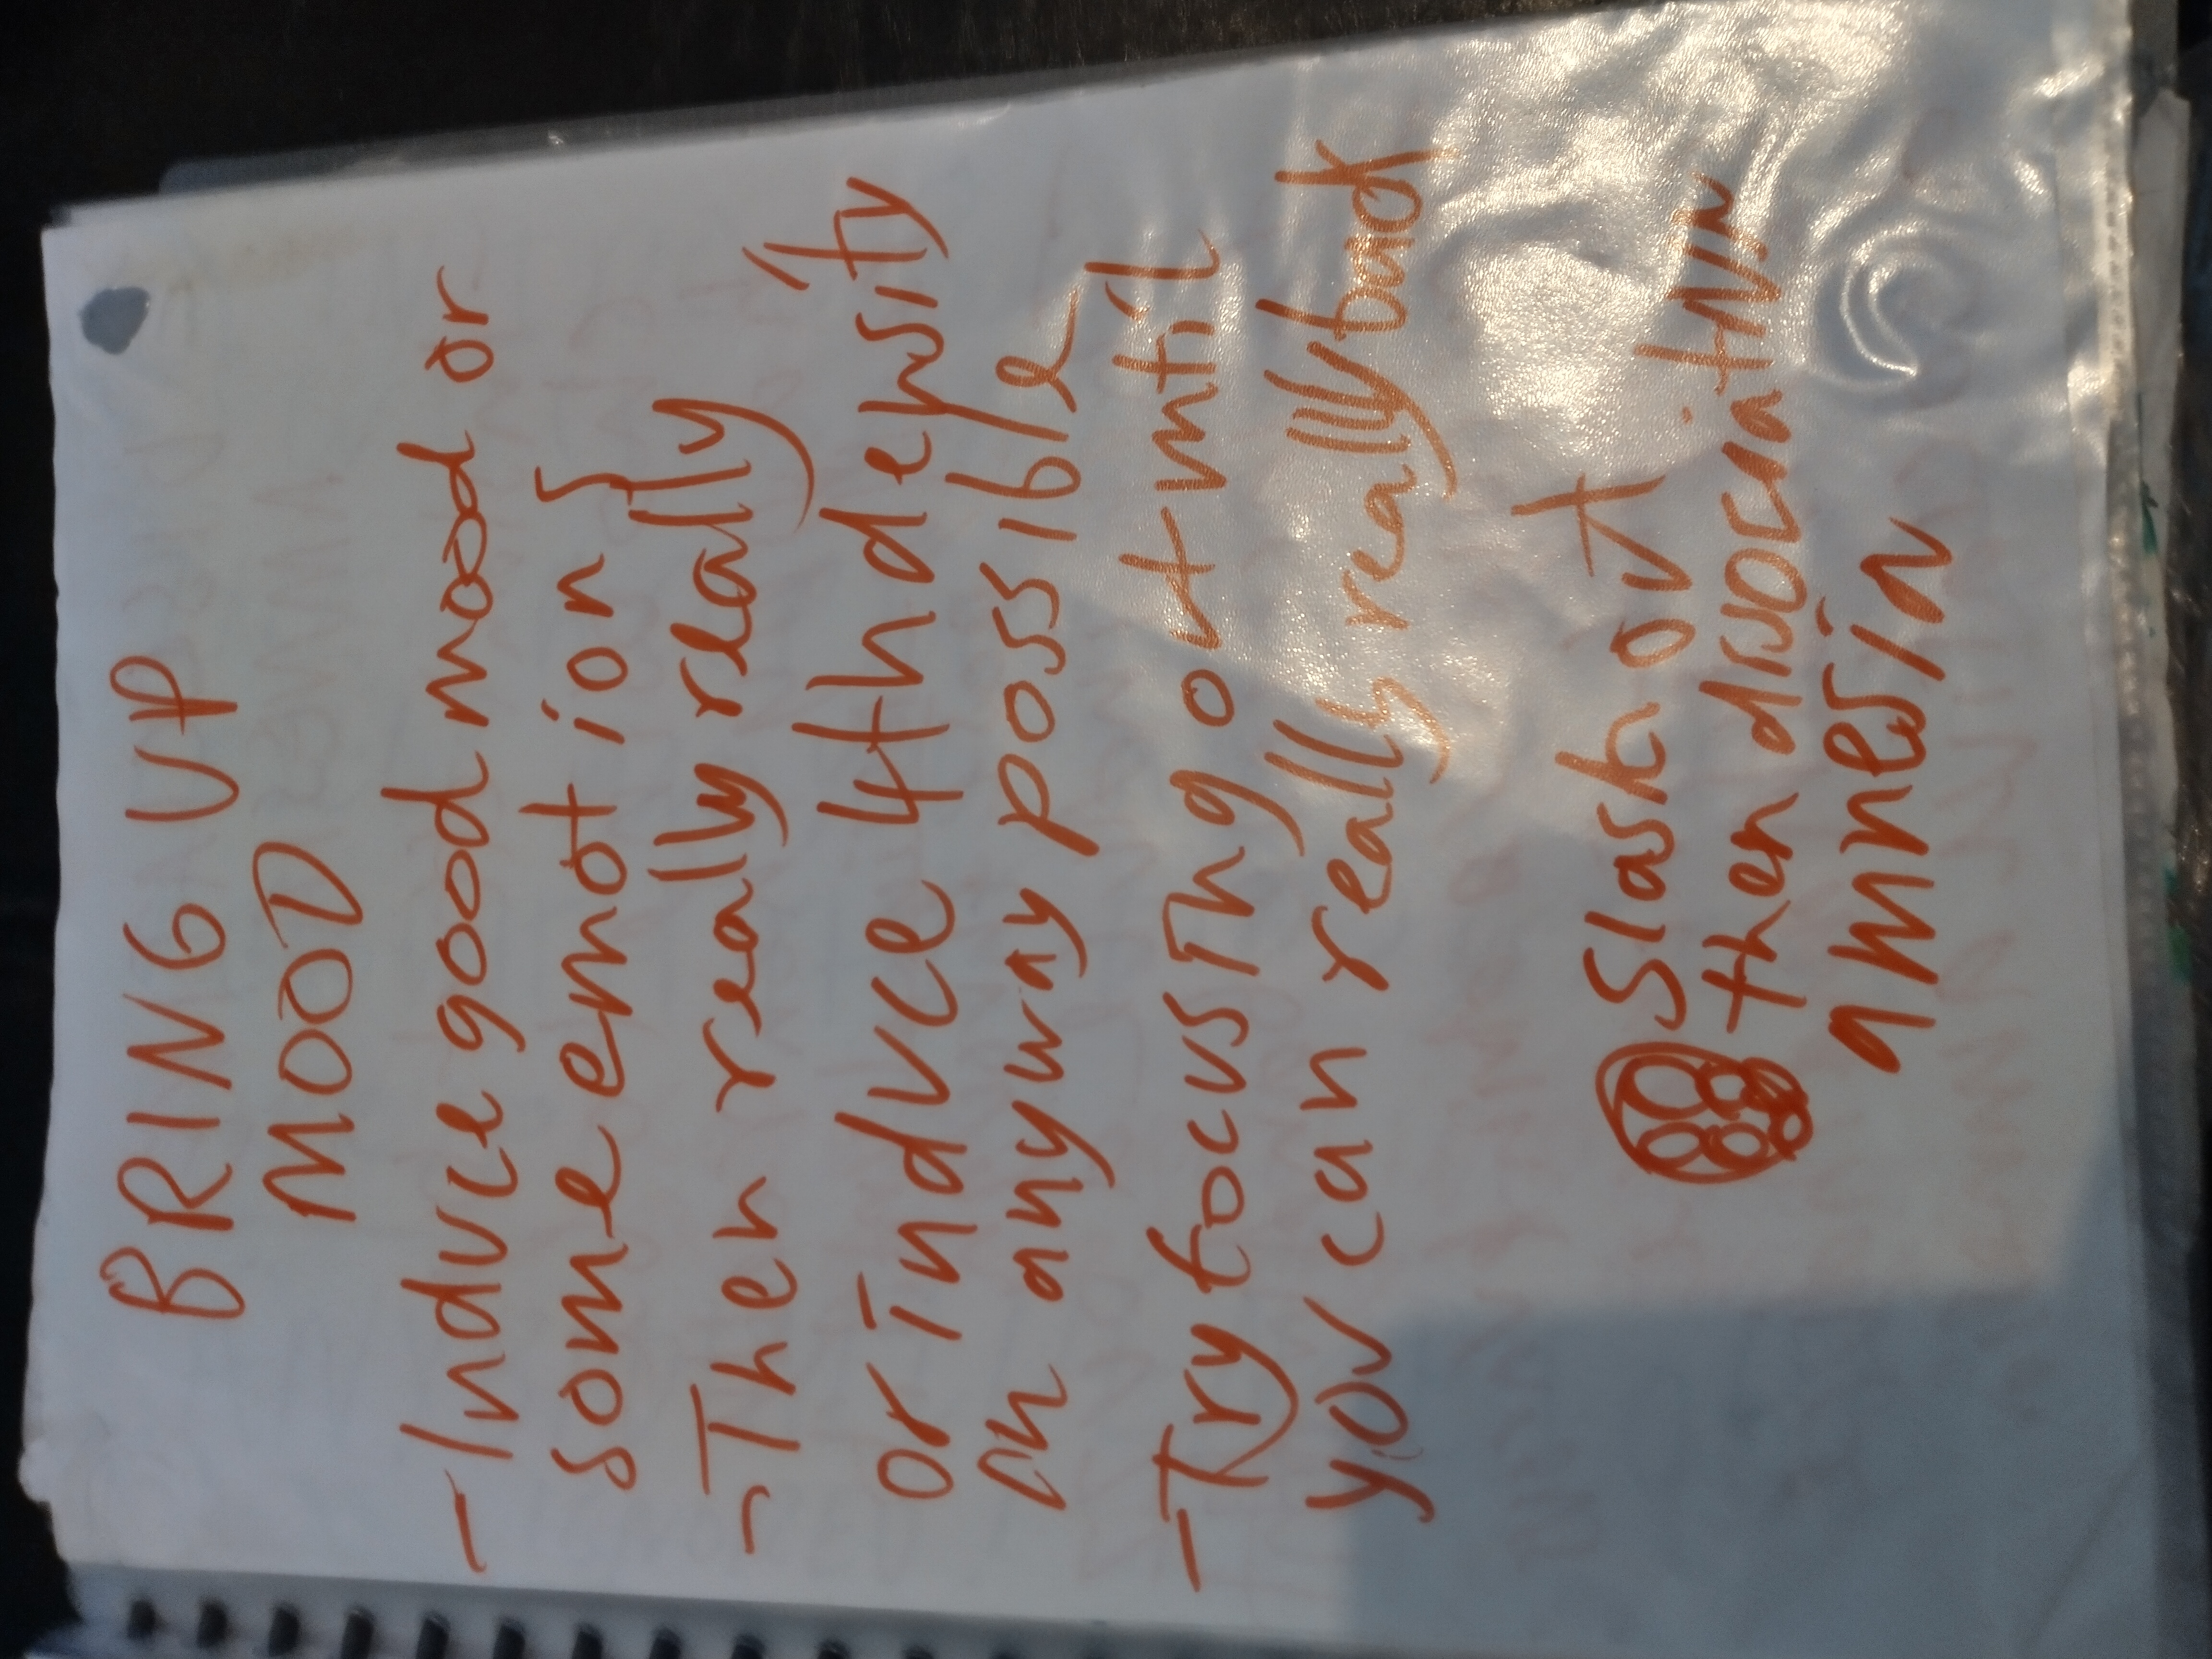 BRING UP
MOOD
- Induce good mood or
some emotion }
- Then really really
or Induce 4th density
in anyway possible
- Try focusing out until
you can really really bad
Slash out
then dissociativ
amnesia